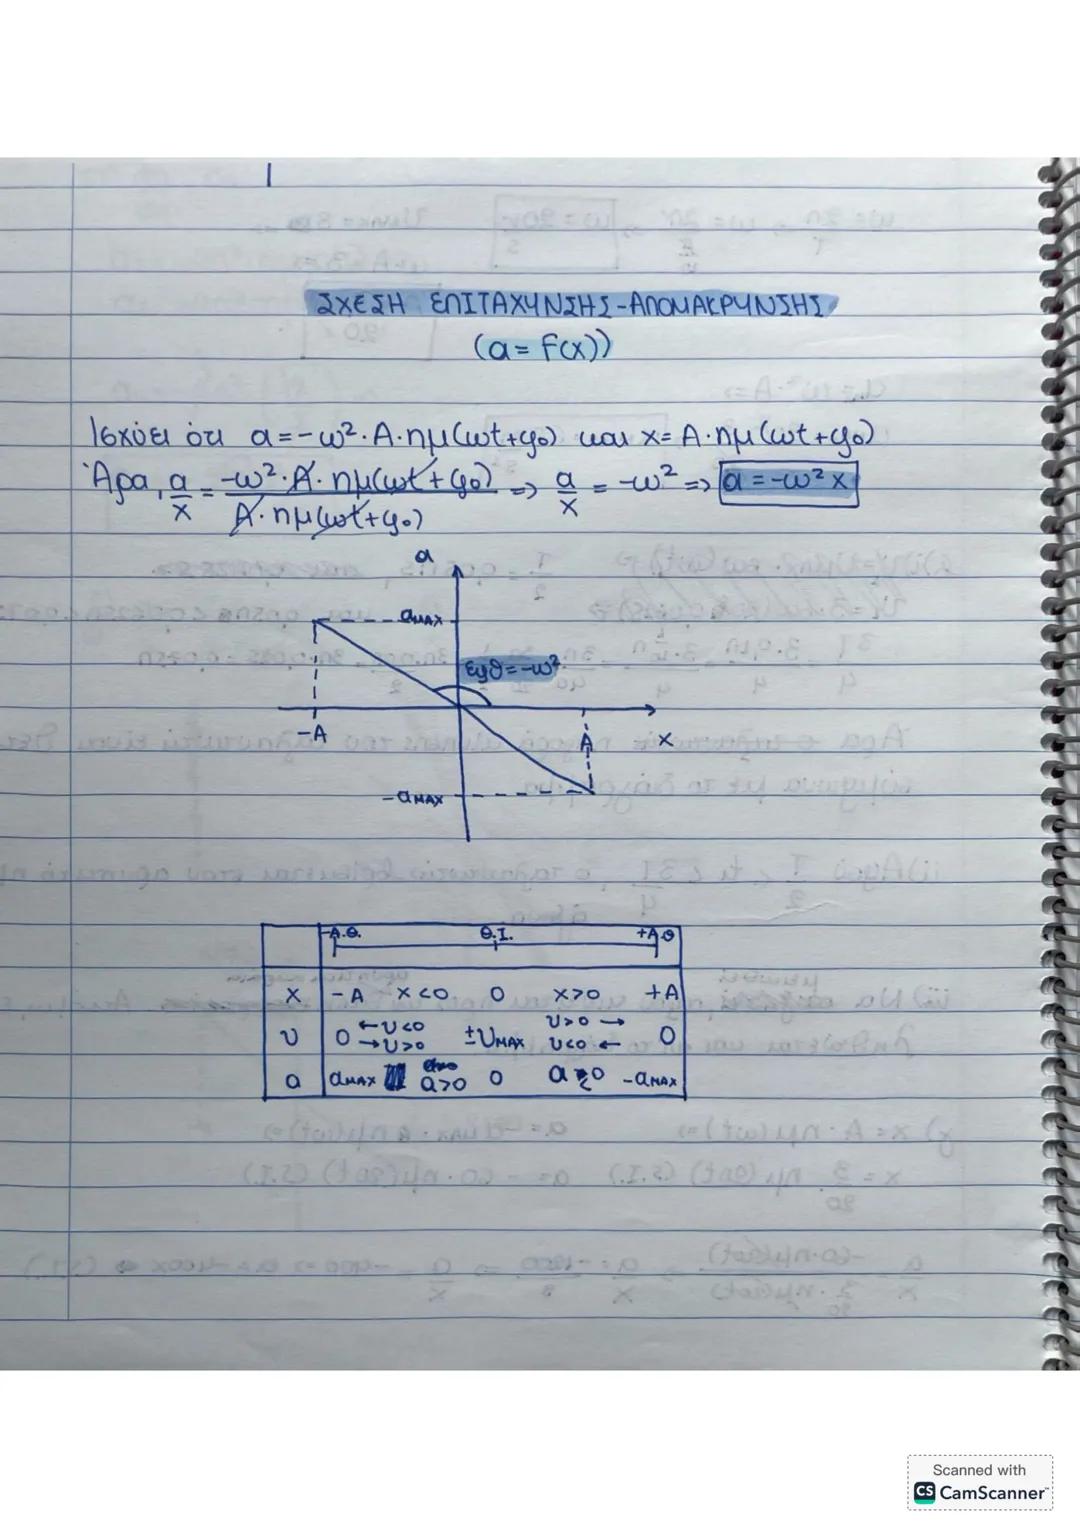 ΣΧΕΣΗ ΕΠΙΤΑΧΥΝΣΗΣ-ΑΠΟΜΑΚΡΥΝΣΗΣ
(a = f(x))
Ισχύει ότι a = -ω². A. ημ(ωt+φ₀) και x = A. ημ(ωt+φ₀)
Άρα, a/x = -ω². A. ημ(ωt+φ₀) / A. ημ(ωt+φ₀) => a/x = -ω² => a = -ω² x
a
aMAX
εφθ = -ω²
-A
A
x
-aMAX
-A.Θ. Θ.Ι. +A.Θ
x -A x<0 0 x>0 +A
υ 0 ←υ<0 →υ>0 ±υMAX υ>0 → υ<0 ← 0
a aMAX a>0 0 -aMAX
Scanned with
CS CamScanner™